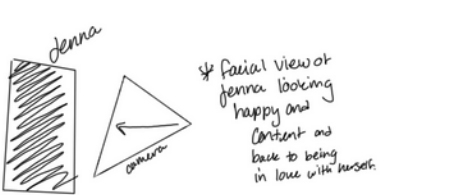 Jenna
camera
* facial view of
Jenna looking
happy and
content and
back to being
in love with herself.